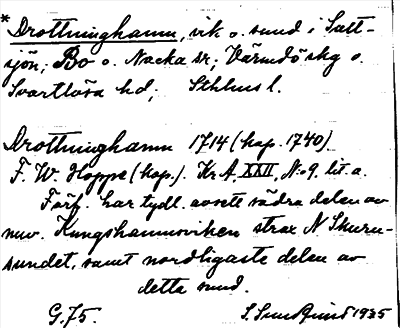 * Drottninghamn, vik o. sund i Salt-
sjön; Bo o. Nacka sr; Värmdö skg o.
Svartlösa hd; Sthlms l.
Drottninghamn 1714 (kop. 1740).
F. W. Hoppe (kop.). Kr A, XXII, N:o 9, lit. a.
Förf. har tydl. avsett södra delen av
nuv. Kungshamnsviken strax N Skuru-
sundet, samt nordligaste delen av
detta sund.
G. 75. 1935